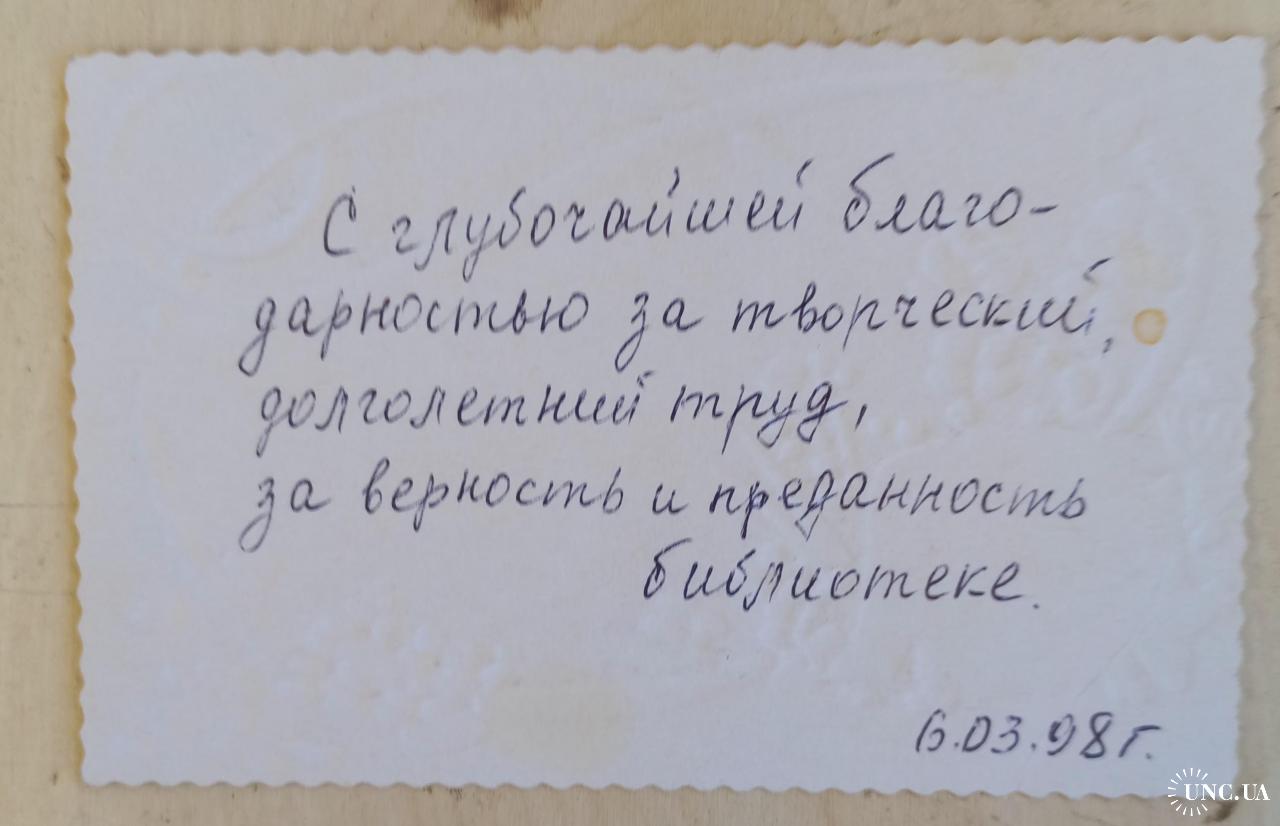 С глубочайшей благо-
дарностью за творческий,
долголетний труд,
за верность и преданность
библиотеке.
6.03.98г.
UNC.UA